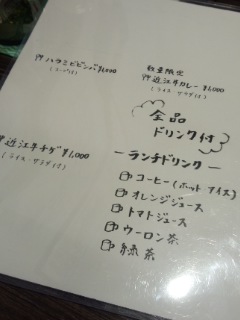 ハラミビビンバ ¥1,000
(スープ付)
近江牛チゲ ¥1,000
(ライス・サラダ付)
数量限定
近江牛カレー ¥1,000
(ライス サラダ付)
全品
ドリンク付
ーランチドリンクー
コーヒー(ホット アイス)
オレンジジュース
トマトジュース
ウーロン茶
緑茶